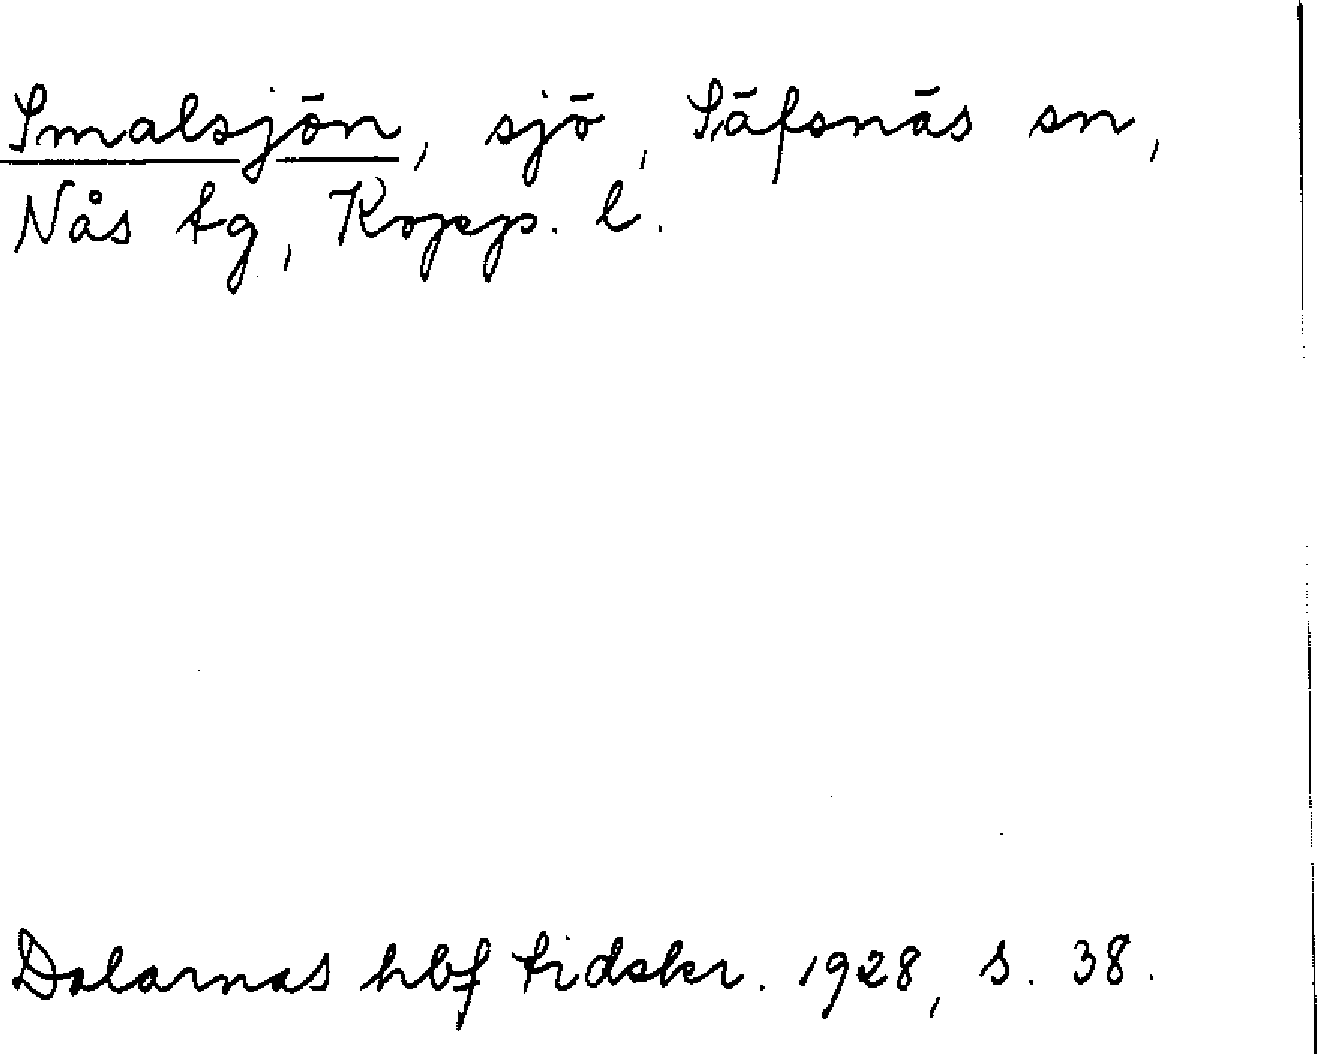 Smalsjön, sjö, Säfsnäs sn,
Nås tg, Kopp. l.
Dalarnas hbf tidskr. 1928, s. 38.